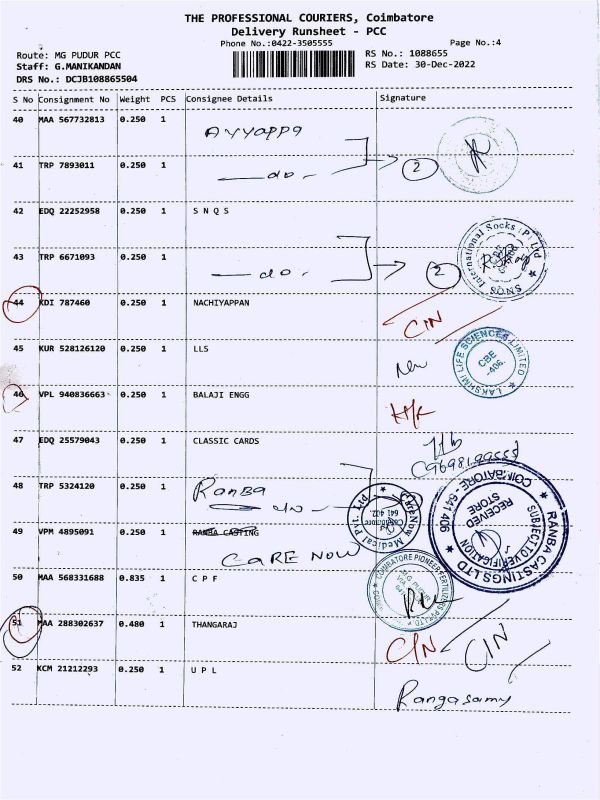 THE PROFESSIONAL COURIERS, Coimbatore
Delivery Runsheet - PCC
Phone No.:0422-3505555
Page No.:4
Route: MG PUDUR PCC
RS No.: 1088655
Staff: G.MANIKANDAN
RS Date: 30-Dec-2022
DRS No.: DCJB108865504
S No Consignment No Weight PCS Consignee Details Signature
40 MAA 567732813 0.250 1 Ayyappa
41 TRP 7893011 0.250 1 — do . 2
42 EDQ 22252958 0.250 1 S N Q S
SNQS International Socks (P) Ltd
43 TRP 6671093 0.250 1 — do . 2
44 KDI 787460 0.250 1 NACHIYAPPAN C/N
45 KUR 528126120 0.250 1 LLS
LAKSHMI LIFE SCIENCES LIMITED
CBE
-406.
46 VPL 940836663 0.250 1 BALAJI ENGG
47 EDQ 25579043 0.250 1 CLASSIC CARDS
48 TRP 5324120 0.250 1 Ranba
— do .
CareNow Medical Pvt. Ltd
Coimbatore
RANBA CASTINGS LTD
COIMBATORE - 641 406
SUBJECT TO VERIFICATION
RECEIVED
STORE
49 VPM 4895091 0.250 1 RANBA CASTING
CARE NOW
50 MAA 568331688 0.835 1 C P F
COIMBATORE PIONEER FERTILIZERS
51 MAA 288302637 0.480 1 THANGARAJ C/N C/N
52 KCM 21212293 0.250 1 U P L
Rangasamy